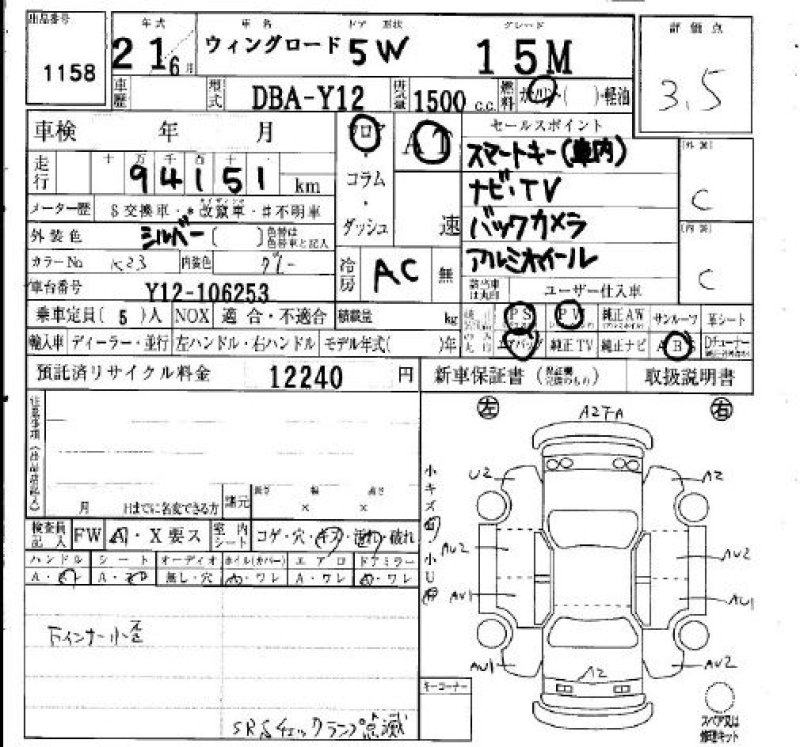 出品番号 年式 車名 ドア 形状 グレード 評価点
1158 21 6月 ウィングロード 5W 15M 3.5
車歴 型式 DBA-Y12 排気量 1500 c.c. 燃料 ガソリン・( )・軽油
車検 年 月 フロア AT セールスポイント
走行 十 万 千 百 十 一 94151 km コラム スマートキー(車内) (外装) C
メーター歴 $交換車・*改竄車・#不明車 ダッシュ 速 ナビ・TV
外装色 シルバー( ) 色替は色替車と記入 バックカメラ (内装) C
カラーNo K23 内装色 グレー 冷房 AC 無 アルミホイール
車台番号 Y12-106253 該当車は丸印 ユーザー仕入車
乗車定員( 5 )人 NOX 適合・不適合 積載量 kg PS PW 純正AW サンルーフ 革シート
輸入車 ディーラー・並行 左ハンドル・右ハンドル モデル年式( )年 エアバッグ 純正TV 純正ナビ ABS Dチューナー
預託済リサイクル料金 12240 円 新車保証書 取扱説明書
注意事項(出品店記入)
月 日までに名変できる方 諸元 長さ × 幅 × 高さ
検査員記入 FW A・X要ス 室内シート コゲ・穴・キズ・汚れ・破れ
ハンドル シート オーディオ ホイル(カバー) エアロ ドアミラー
A・スレ A・スレ 無し・穴 A・ワレ A・ワレ A・ワレ
下インナー小歪
SRSチェックランプ点滅
小キズ有 小U有
左 A2 右
U2 A2
AU2 AU2
AU1 AU1
AU1 A2 AU2
キーコーナー スペア又は修理キット